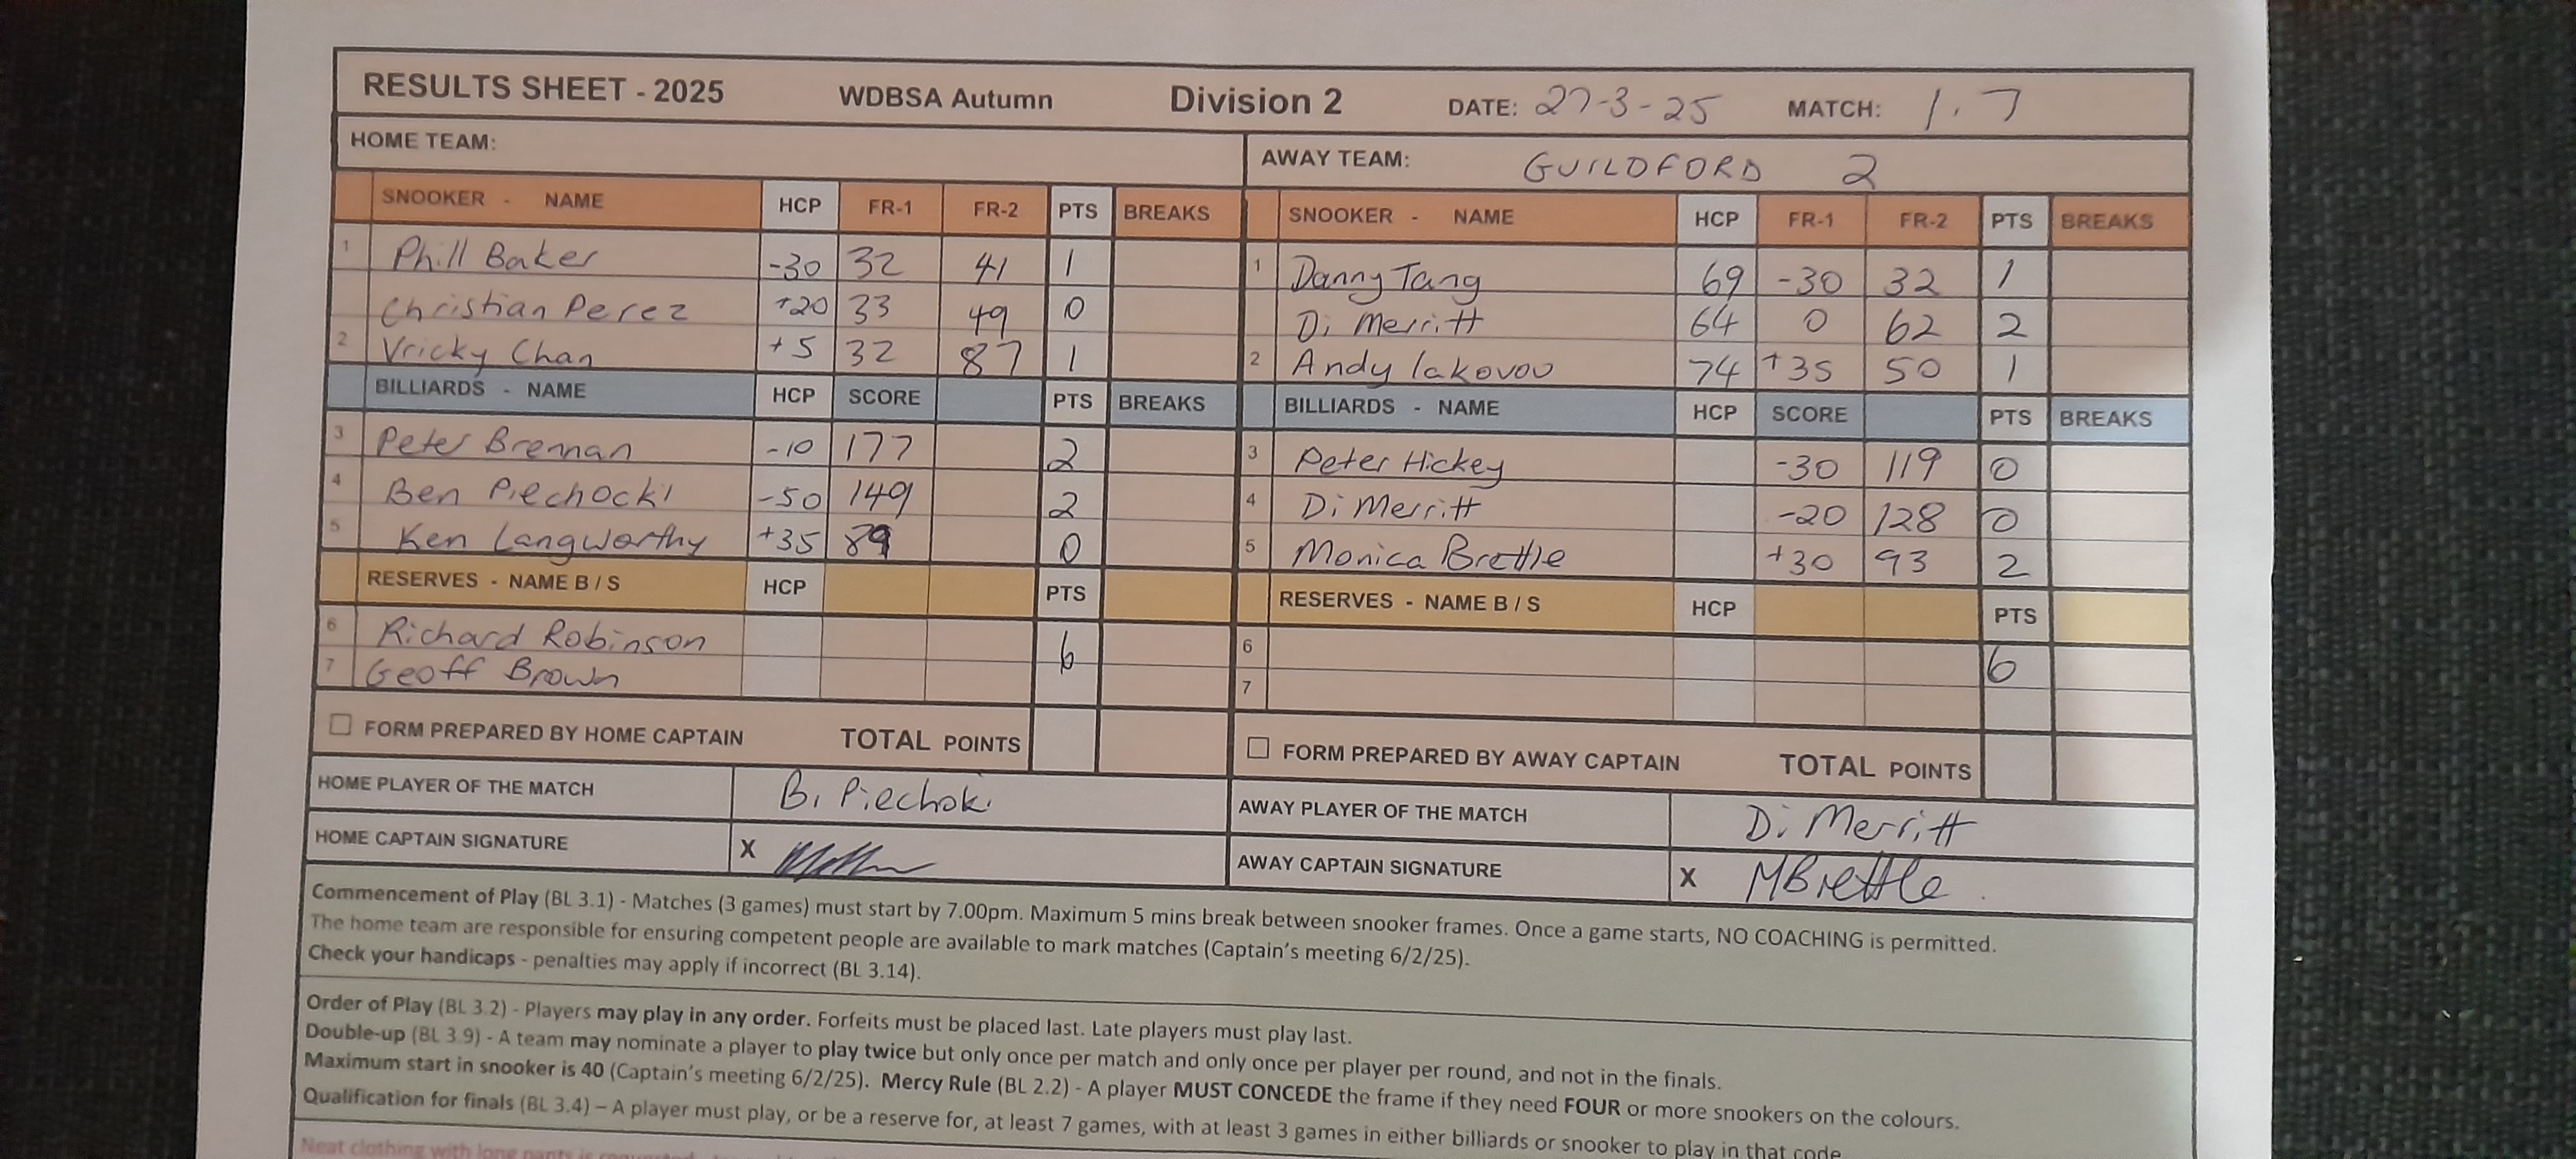 RESULTS SHEET - 2025 WDBSA Autumn Division 2 DATE: 27-3-25 MATCH: 1.7
HOME TEAM: AWAY TEAM: GUILDFORD 2
SNOOKER - NAME HCP FR-1 FR-2 PTS BREAKS SNOOKER - NAME HCP FR-1 FR-2 PTS BREAKS
1 Phill Baker -30 32 41 1 1 Danny Tang 69 -30 32 1
Christian Perez +20 33 49 0 Di Merritt 64 0 62 2
2 Vricky Chan +5 32 87 1 2 Andy Iakovou 74 +35 50 1
BILLIARDS - NAME HCP SCORE PTS BREAKS BILLIARDS - NAME HCP SCORE PTS BREAKS
3 Peter Brennan -10 177 2 3 Peter Hickey -30 119 0
4 Ben Piechocki -50 149 2 4 Di Merritt -20 128 0
5 Ken Langworthy +35 89 0 5 Monica Brettle +30 93 2
RESERVES - NAME B / S HCP PTS RESERVES - NAME B / S HCP PTS
6 Richard Robinson 6 6 6
7 Geoff Brown 7
FORM PREPARED BY HOME CAPTAIN TOTAL POINTS FORM PREPARED BY AWAY CAPTAIN TOTAL POINTS
HOME PLAYER OF THE MATCH B. Piechoki AWAY PLAYER OF THE MATCH Di Merritt
HOME CAPTAIN SIGNATURE X AWAY CAPTAIN SIGNATURE X MBrettle
Commencement of Play (BL 3.1) - Matches (3 games) must start by 7.00pm. Maximum 5 mins break between snooker frames. Once a game starts, NO COACHING is permitted.
The home team are responsible for ensuring competent people are available to mark matches (Captain's meeting 6/2/25).
Check your handicaps - penalties may apply if incorrect (BL 3.14).
Order of Play (BL 3.2) - Players may play in any order. Forfeits must be placed last. Late players must play last.
Double-up (BL 3.9) - A team may nominate a player to play twice but only once per match and only once per player per round, and not in the finals.
Maximum start in snooker is 40 (Captain's meeting 6/2/25). Mercy Rule (BL 2.2) - A player MUST CONCEDE the frame if they need FOUR or more snookers on the colours.
Qualification for finals (BL 3.4) – A player must play, or be a reserve for, at least 7 games, with at least 3 games in either billiards or snooker to play in that code.
Neat clothing with long pants is requested